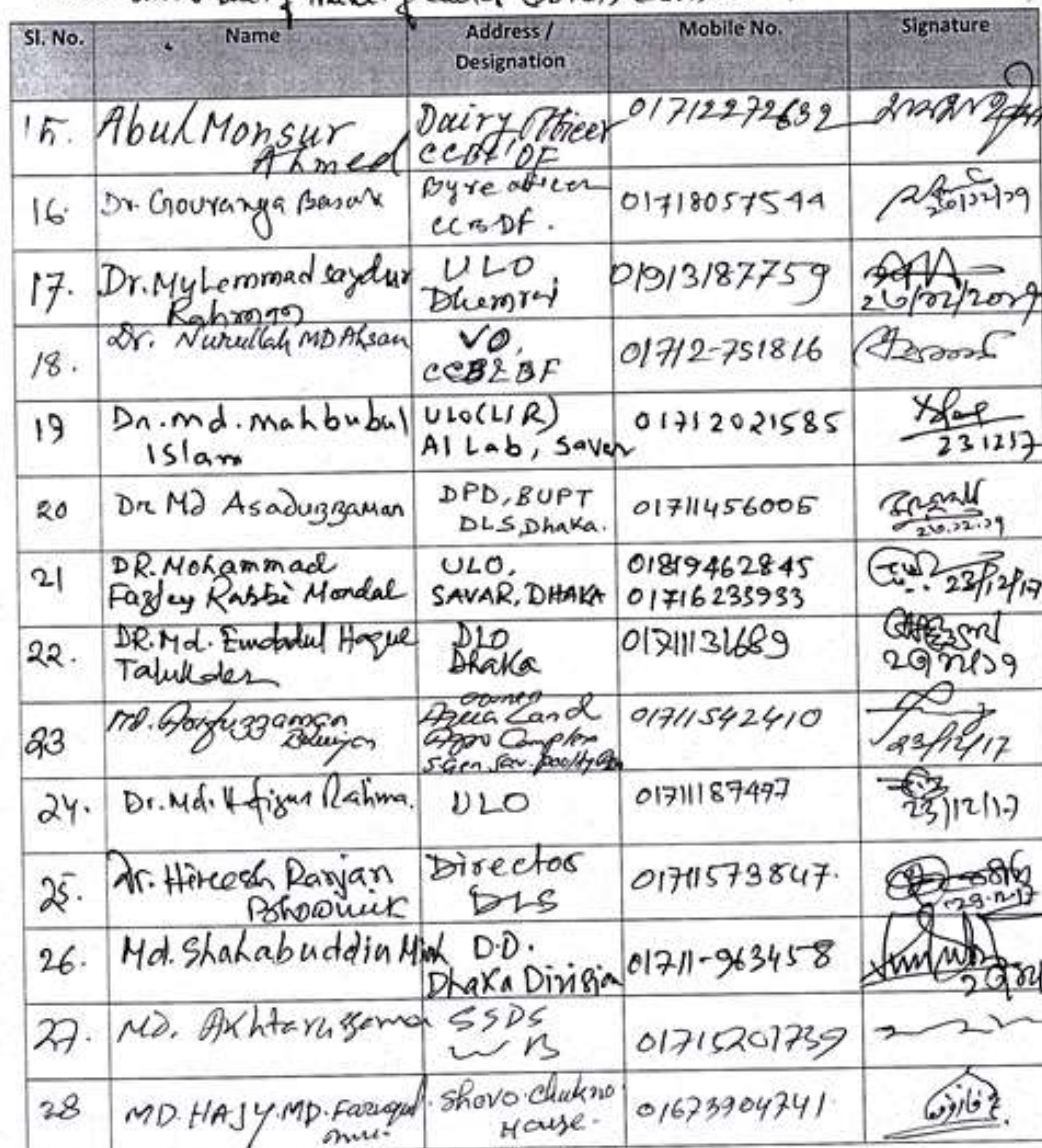 Sl. No. Name Address / Designation Mobile No. Signature
15. Abul Monsur Ahmed Dairy Officer CCBDF 01712272632
16. Dr. Gouranga Basak Byre officer CCBDF. 01718057544
17. Dr. Muhammad Saydur Rahman ULO Dhamrai 01913187759 
18. Dr. Nurullah MD Ahsan VO, CCB&BF 01712-751816
19 Dr. md. mahbubul Islam ULO(L/R) AI Lab, Savar 01712021585 231217
20 Dr Md Asaduzzaman DPD, BUPT DLS, Dhaka. 01711456005
21 DR. Mohammad Fazley Rabbi Mondal ULO, SAVAR, DHAKA 01819462845 01716233933 23/12/17
22. DR. Md. Emdadul Haque Talukder DLO Dhaka 01711131689
23 MD. owner Land Agro Complex 01711542410 23/12/17
24. Dr. Md. Hafizur Rahma. ULO 01711187497 23/12/17
25. Dr. Hireesh Ranjan Bhowmik Director DLS 01711573847.
26. Md. Shahabuddin Miah D.D. Dhaka Division 01711-963458
27. MD. Akhtaruzzama SSDS WB 01715201739
28 MD. HAJY. MD. House. 01673904741